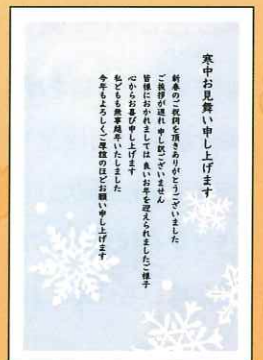 寒中お見舞い申し上げます
新春のご祝詞を頂きありがとうございました
ご挨拶が遅れ 申し訳ございません
皆様におかれましては 良いお年を迎えられましたご様子
心からお喜び申し上げます
私どもも無事越年いたしました
今年もよろしくご厚誼のほどお願い申し上げます